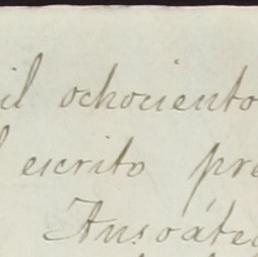 il ochociento
l escrito pre
Ansoáteg